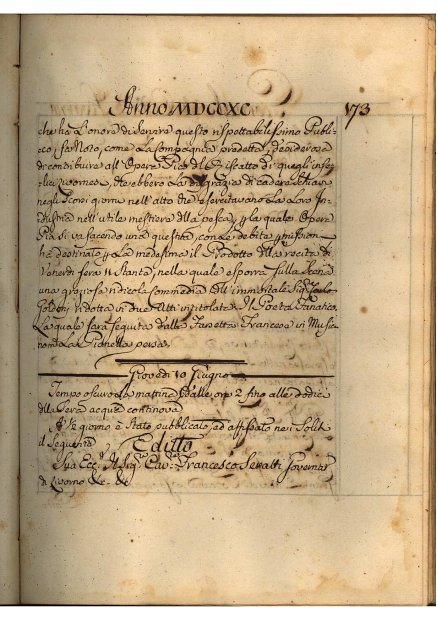 Anno MDCCXC 173
che ha l'onore di servire questo rispettabilissimo Publi-
co, fa noto, come la Compagnia predetta, desiderosa
di contribuire all'Opera Pia del Riscatto di quegli infe-
lici, che ebbero la disgrazia di cadere schiavi
negli scorsi giorni nell'atto che esercitavano la loro In-
dustria nell'utile mestiere della pesca, p la quale Opera
Pia si va facendo una questua, con le debite permissioni
ha destinato p la medesima il Prodotto della recita di
Venerdì sera 11 Stante, nella quale esporrà sulla Scena
una graziosa ridicola Commedia dell'immortale Sig.
Goldoni ridotta in due Atti intitolata Il Poeta Fanatico
La quale sarà seguita dalla Farsetta Francese in Musica
La Pianella persa.
Giovedì 10 Giugno
Tempo oscuro la mattina, e dalle ore 2 fino alle dodici
della sera acqua continova
giorno è stato pubblicato, ed affissato nei Soliti
il Seguente Editto
Sua Ecc. Il Sig. Cav. Francesco Seratti Governat
di Livorno &c. &c